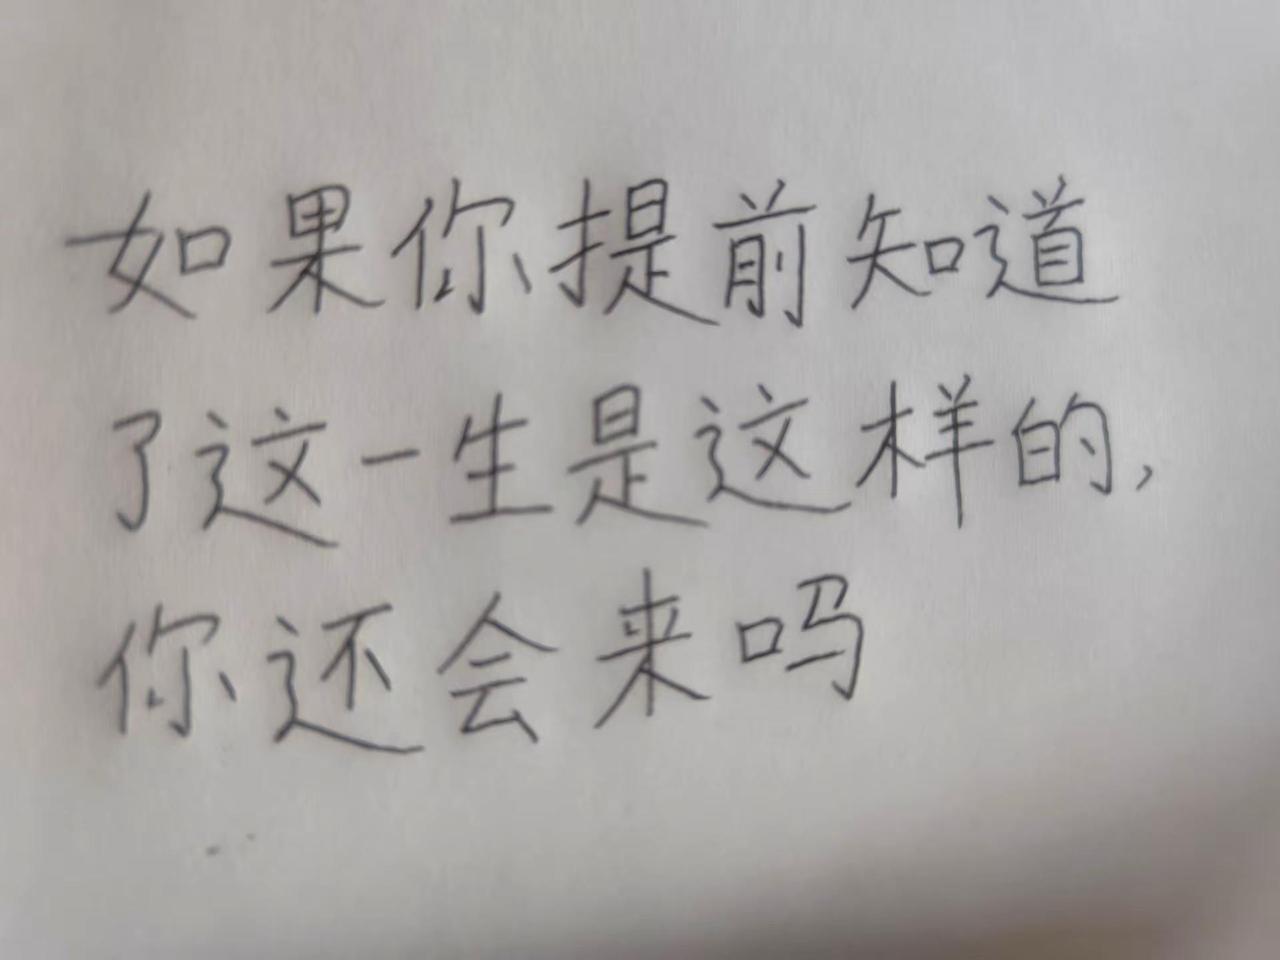 如果你提前知道
了这一生是这样的,
你还会来吗